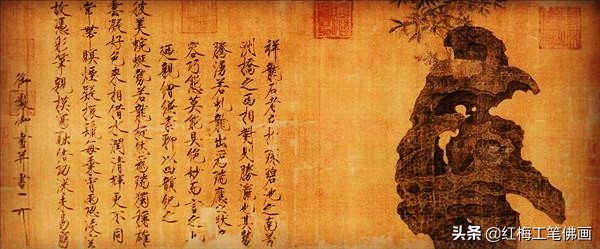 祥龍石者立於環碧池之南芳
洲橋之西相對則勝瀛也其勢
騰湧若虬龍出為瑞應之狀奇
容巧態莫能具絕妙而言之也
廼親繪縑素聊以四韻紀之
彼美蜿蜒勢若龍挺然為瑞獨稱雄
雲凝好色來相借水潤清輝更不同
常帶暝煙疑振鬣每乘宵雨恐凌空
故憑彩筆親模寫融結功深未易窮
御製御畫并書
头条 @红梅工笔佛画